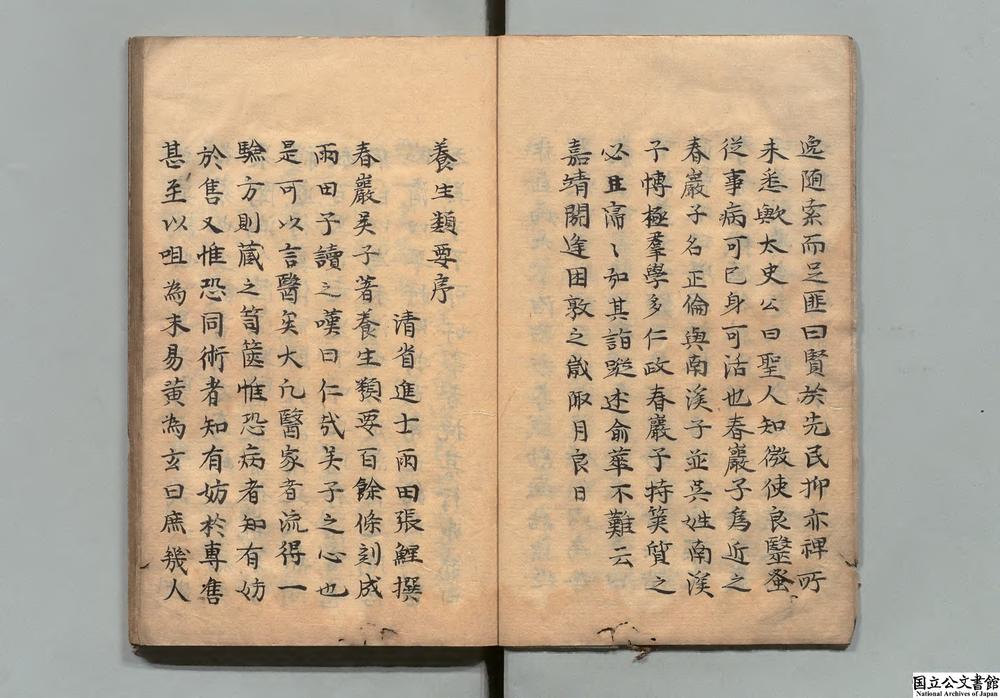 逸随索而足匪曰賢於先民抑亦裨所
未悉歟太史公曰聖人知微使良毉蚤
從事病可已身可活也春巖子爲近之
春巖子名正倫與南溪子並吳姓南溪
子愽極羣學多仁政春巖子持筴質之
必且霈〻和其詣蹤述俞華不難云
嘉靖閼逢困敦之歲陬月良日
養生類要序
清省進士雨田張鯉撰
春巖吴子著養生類要百餘條刻成
雨田子讀之嘆曰仁㢤吴子之心也
是可以言醫矣大凡醫家者流得一
驗方則蔵之笥篋惟恐病者知有妨
於售又惟恐同術者知有妨於專售
甚至以咀為末易黄為玄曰庶幾人
国立公文書館
National Archives of Japan